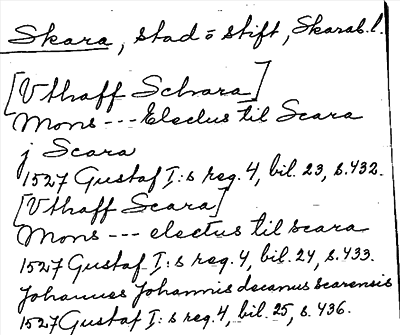 Skara, stad o stift, Skarab. l.
[Vthaff Schara]
Mons --- Electus til Scara
j Scara
1527 Gustaf I:s reg. 4, bil. 23, s. 432.
[Vthaff Scara]
Mons --- electus til scara
1527 Gustaf I:s reg. 4, bil. 24, s. 433.
Johannes Johannis decanus scarensis
1527 Gustaf I:s reg. 4, bil. 25, s. 436.